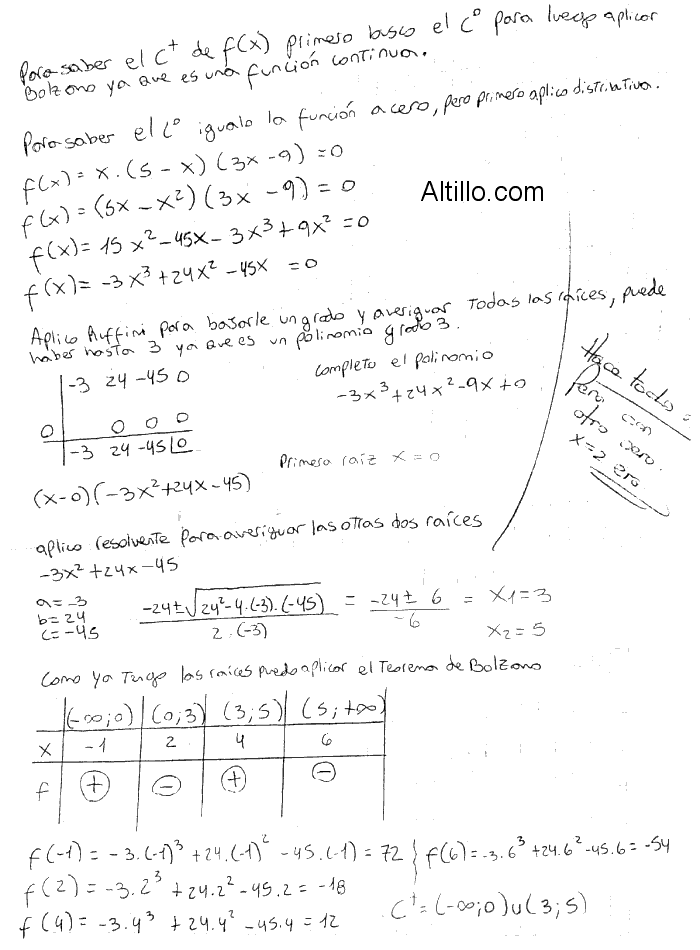 Para saber el C⁺ de f(x) primero busco el C⁰ para luego aplicar
Bolzano ya que es una función continua.
Para saber el C⁰ igualo la función a cero, pero primero aplico distributiva.
f(x) = x · (5 - x) (3x - 9) = 0
Altillo.com
f(x) = (5x - x²) (3x - 9) = 0
f(x) = 15x² - 45x - 3x³ + 9x² = 0
f(x) = -3x³ + 24x² - 45x = 0
Aplico Ruffini para bajarle un grado y averiguar todas las raíces, puede
haber hasta 3 ya que es un polinomio grado 3.
completo el polinomio
-3x³ + 24x² - 9x + 0
-3 24 -45 0
0 0 0 0
-3 24 -45 0
Primera raíz x = 0
(x-0) (-3x² + 24x - 45)
Hace todo
Pero con
otro cero.
x=2 ero
aplico resolvente para averiguar las otras dos raíces
-3x² + 24x - 45
a = -3
b = 24
c = -45
-24 ± √(24² - 4·(-3)·(-45)) / 2·(-3) = -24 ± 6 / -6 = x₁ = 3
x₂ = 5
Como ya tengo las raíces puedo aplicar el Teorema de Bolzano
(-∞;0) (0;3) (3;5) (5;+∞)
x -1 2 4 6
f + - + -
f(-1) = -3·(-1)³ + 24·(-1)² - 45·(-1) = 72 } f(6) = -3·6³ + 24·6² - 45·6 = -54
f(2) = -3·2³ + 24·2² - 45·2 = -18
f(4) = -3·4³ + 24·4² - 45·4 = 12
C⁺ = (-∞;0) ∪ (3;5)